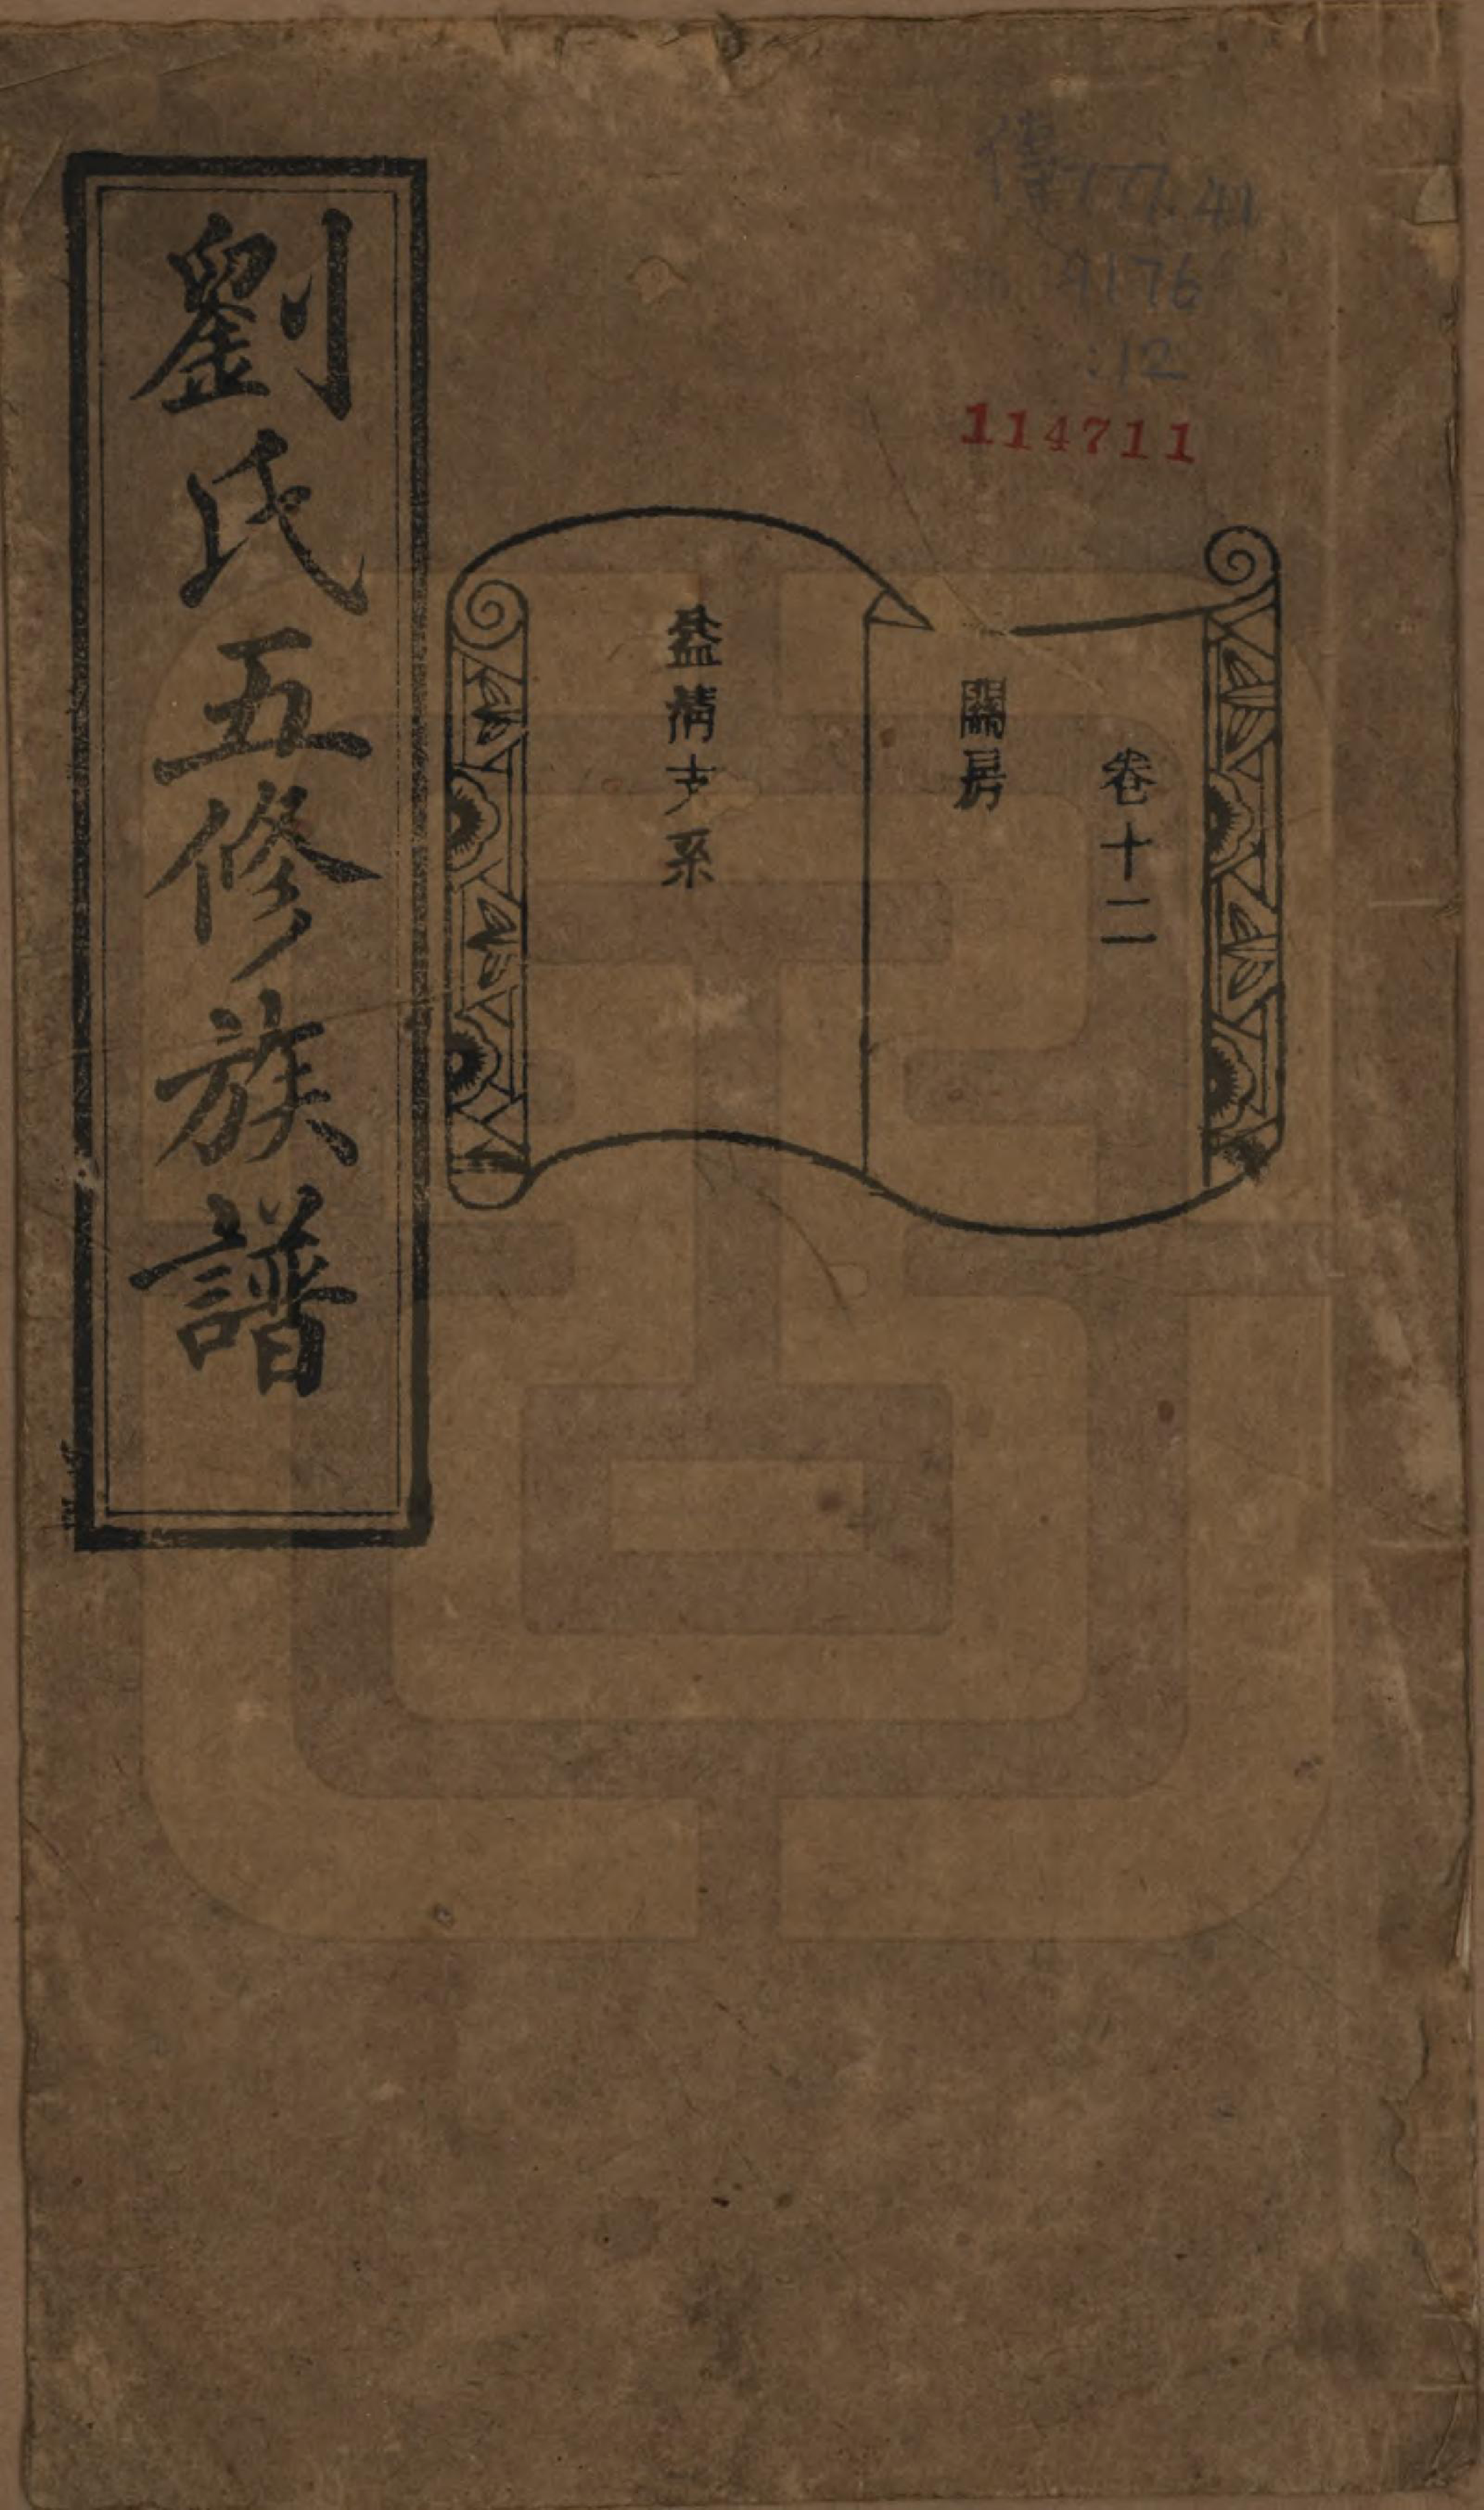 傳777.41
4176
:12
114711
卷十二
關房
益清支系
劉氏五修族譜